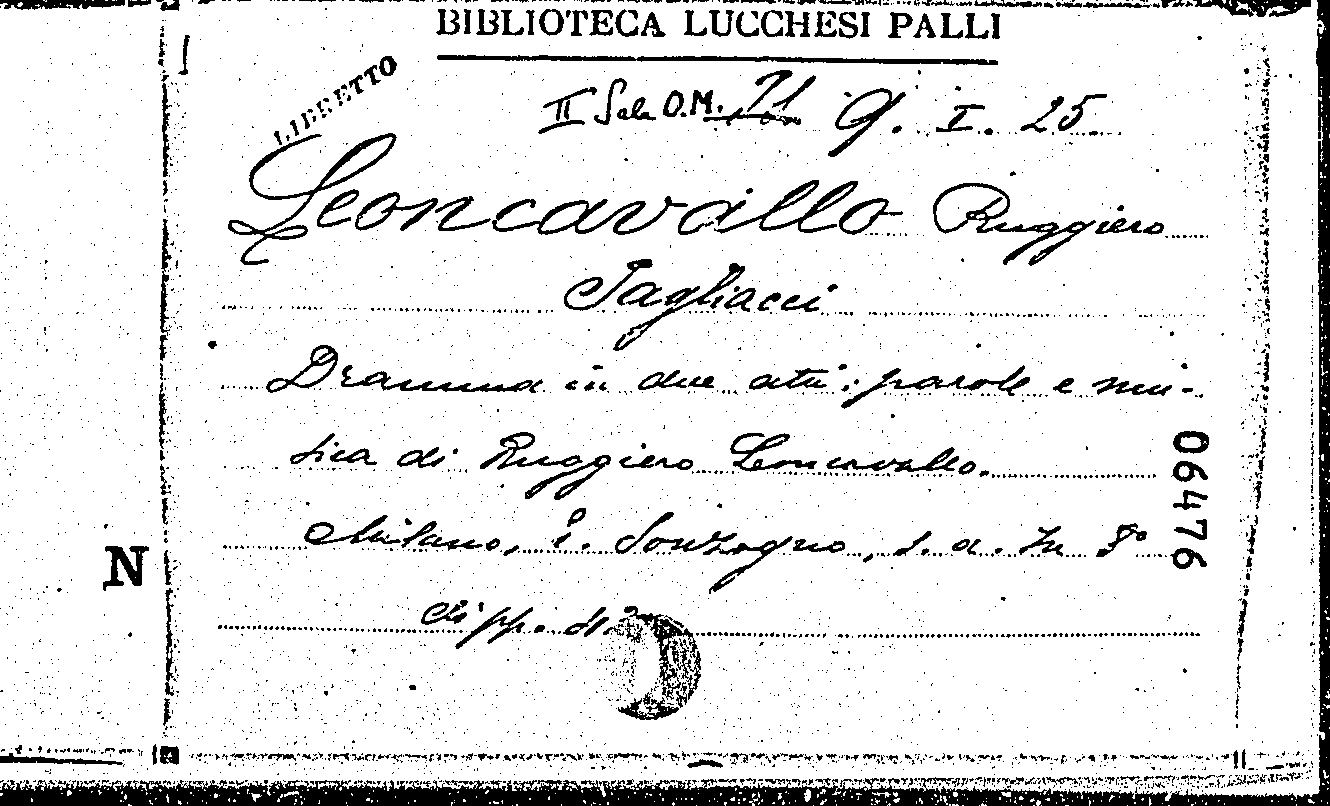 BIBLIOTECA LUCCHESI PALLI
LIBRETTO
II Sala O.M. 21 9. I. 25.
Leoncavallo Ruggiero
Pagliacci
Dramma in due atti: parole e mu-
sica di Ruggiero Leoncavallo.
Milano, E. Sonzogno, s. a. In 8°
di pp.
06476
N